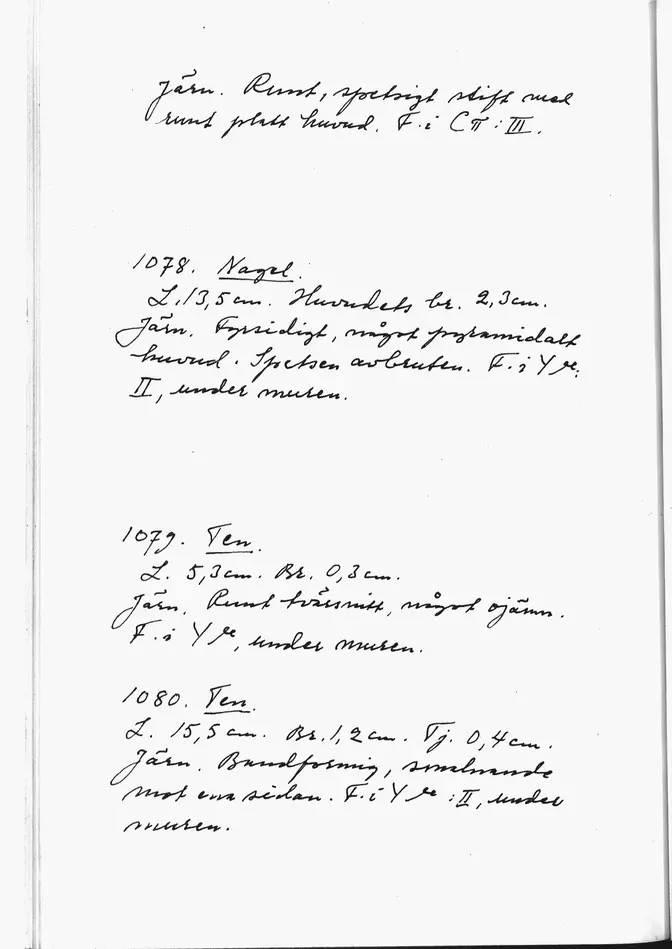 Järn. Runt, spetsigt stift med
runt platt huvud. F. i Cπ : III.
1078. Nagel.
L. 13,5 cm. Huvudets br. 2,3 cm.
Järn. Fyrsidigt, något pyramidalt
huvud. Spetsen avbruten. F. i Y
II, under muren.
1079. Ten.
L. 5,3 cm. Br. 0,3 cm.
Järn. Runt tvärsnitt, något ojämn.
F. i Y, under muren.
1080. Ten.
L. 15,5 cm. Br. 1,2 cm. Tj. 0,4 cm.
Järn. Bandformig, smalnande
mot ena sidan. F. i Y : II, under
muren.